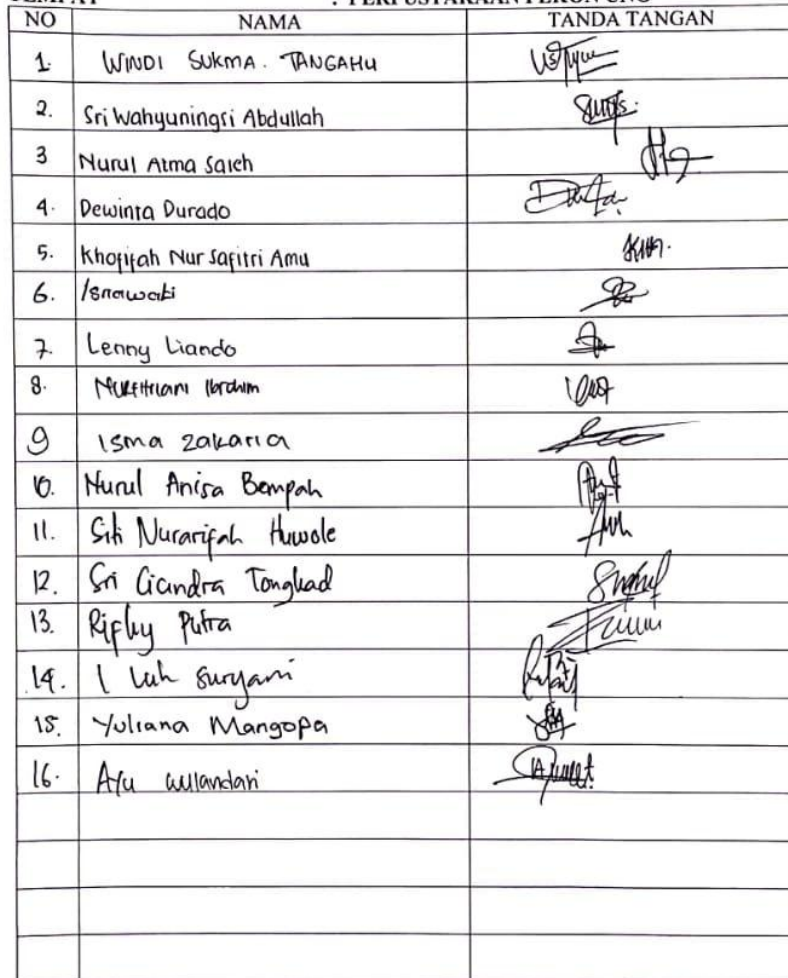 NO NAMA TANDA TANGAN
1. WINDI SUKMA. TANGAHU
2. Sri Wahyuningsi Abdullah
3 Nurul Atma Saleh
4. Dewinta Durado
5. Khofifah Nur Safitri Amu
6. Isnawati
7. Lenny Liando
8. Nurfitriani Ibrahim
9 Isma Zakaria
10. Nurul Anisa Bempah
11. Siti Nurarifah Huwole
12. Sri Ciandra Tongkad
13. Rifky Putra
14. I Luh Suryani
15. Yuliana Mangopa
16. Ayu wulandari